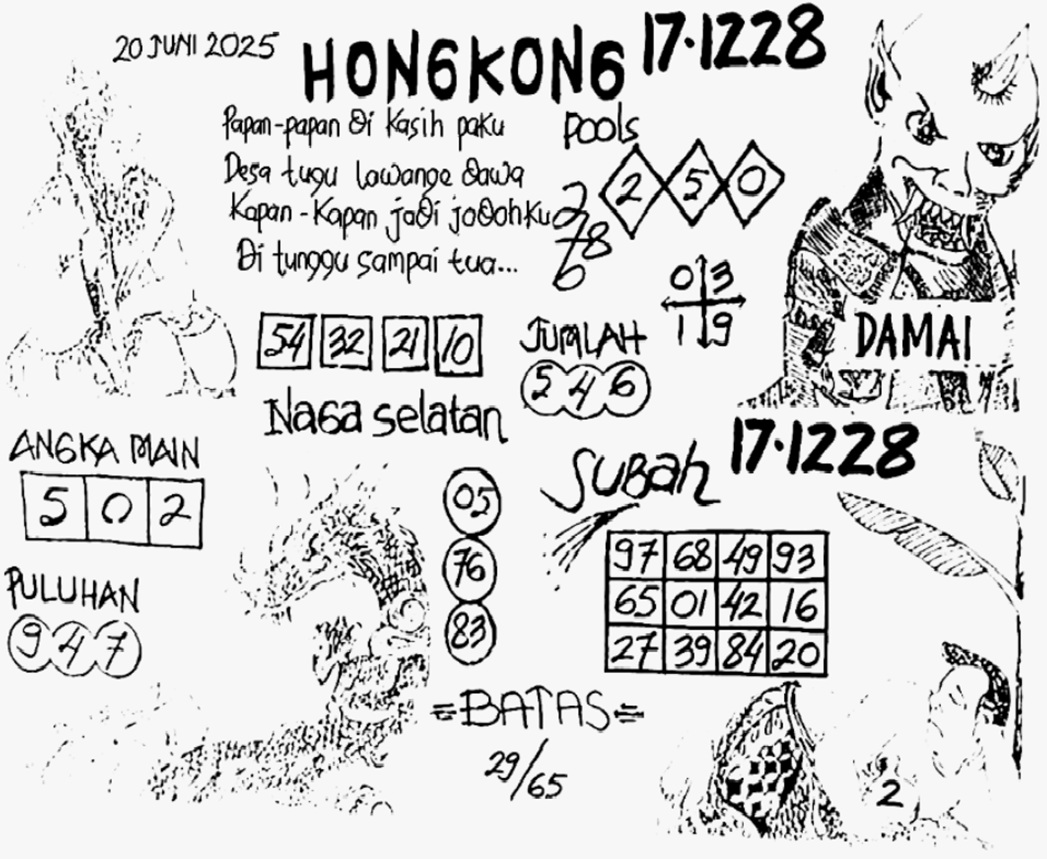 20 JUNI 2025
HONGKONG 17·1228
Papan-papan di kasih paku
Pools
Desa tugu lawange dawa
2 5 0
Kapan-Kapan jadi jodohku
2
78
6
Di tunggu sampai tua...
0 3
1 9
DAMAI
54 32 21 10
JUMLAH
5 4 6
Naga selatan
ANGKA MAIN
5 0 2
05
76
83
SUBAH 17·1228
97 68 49 93
65 01 42 16
27 39 84 20
PULUHAN
9 4 7
=BATAS=
29/65
2